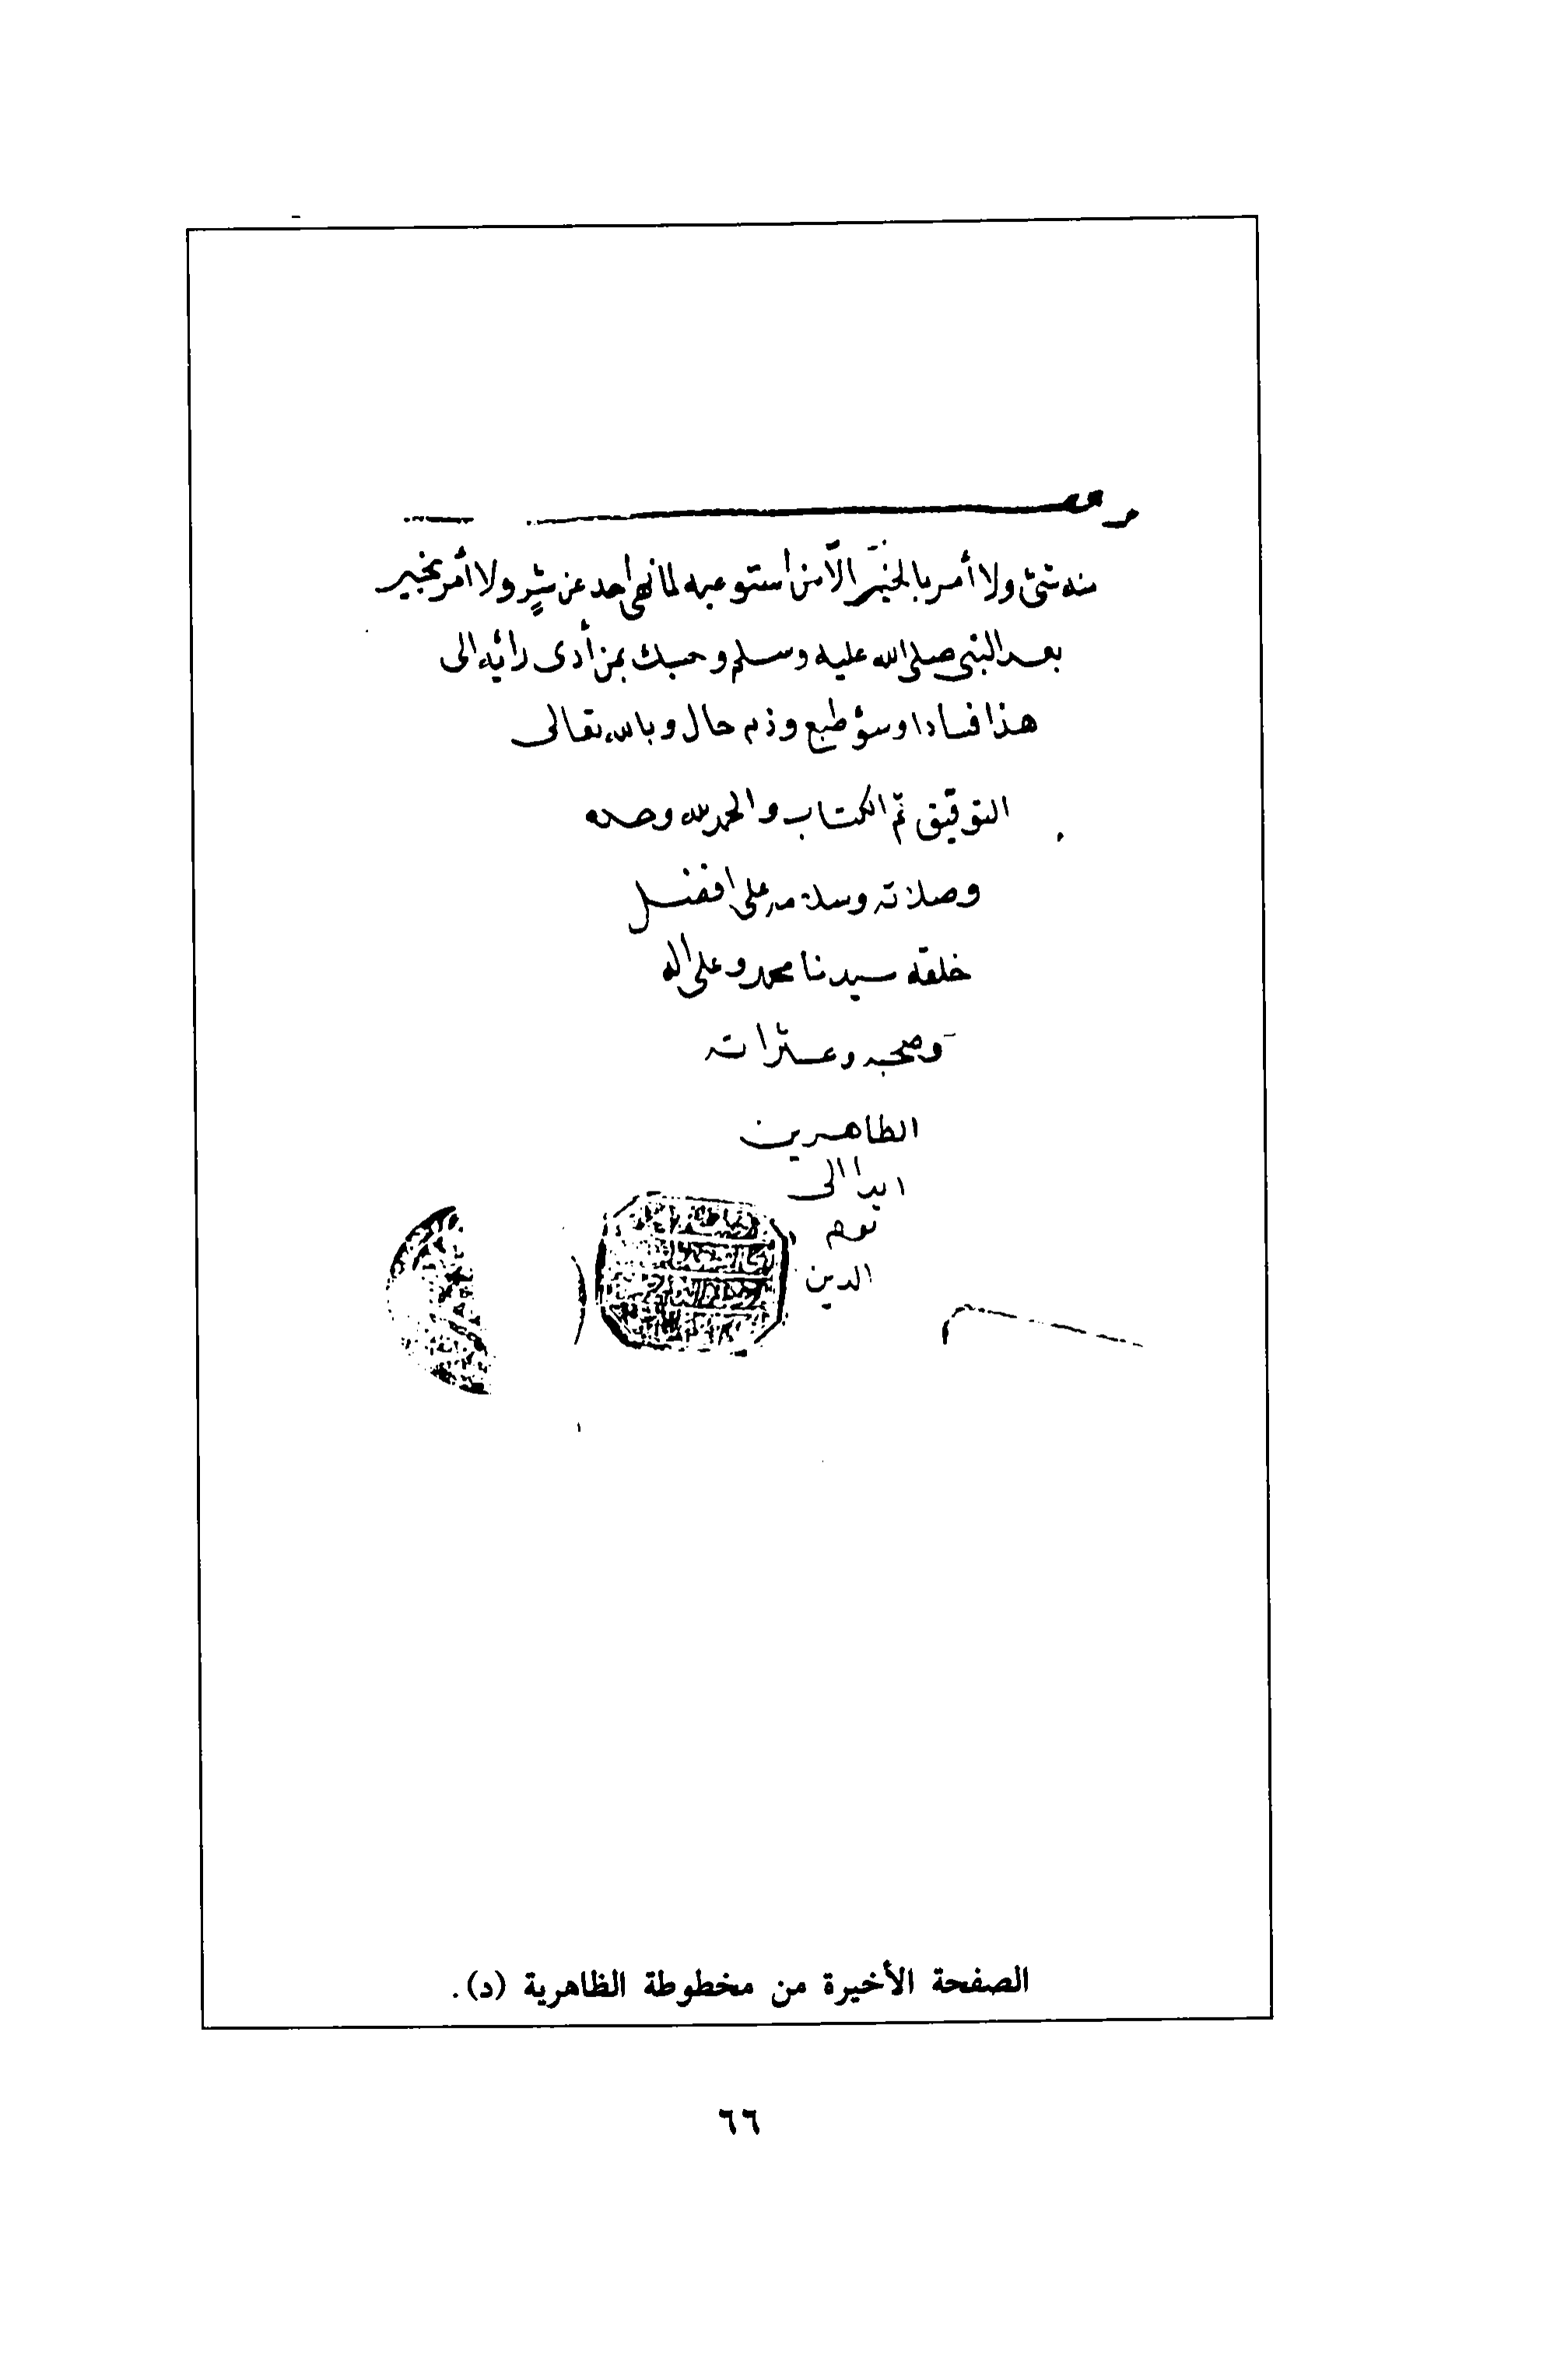 منه شئ ولا أمر بالخير الّا من استوعبه لما نهى احد عن شرٍ ولا أمر بخير
بعد النبى صلى الله عليه وسلم وحسبك بمن أدى رائه الى
هذا فسادا وسؤ طبع وذم حال وبالله تعالى
التوفيق تمّ الكتاب والحمد لله وحده
وصلاته وسلامه على افضل
خلقه سيدنا محمد وعلى اله
وصحبه وعتراته
الطاهرين
ابدا الى
يوم
الدين
الصفحة الأخيرة من مخطوطة الظاهرية (د).
٦٦